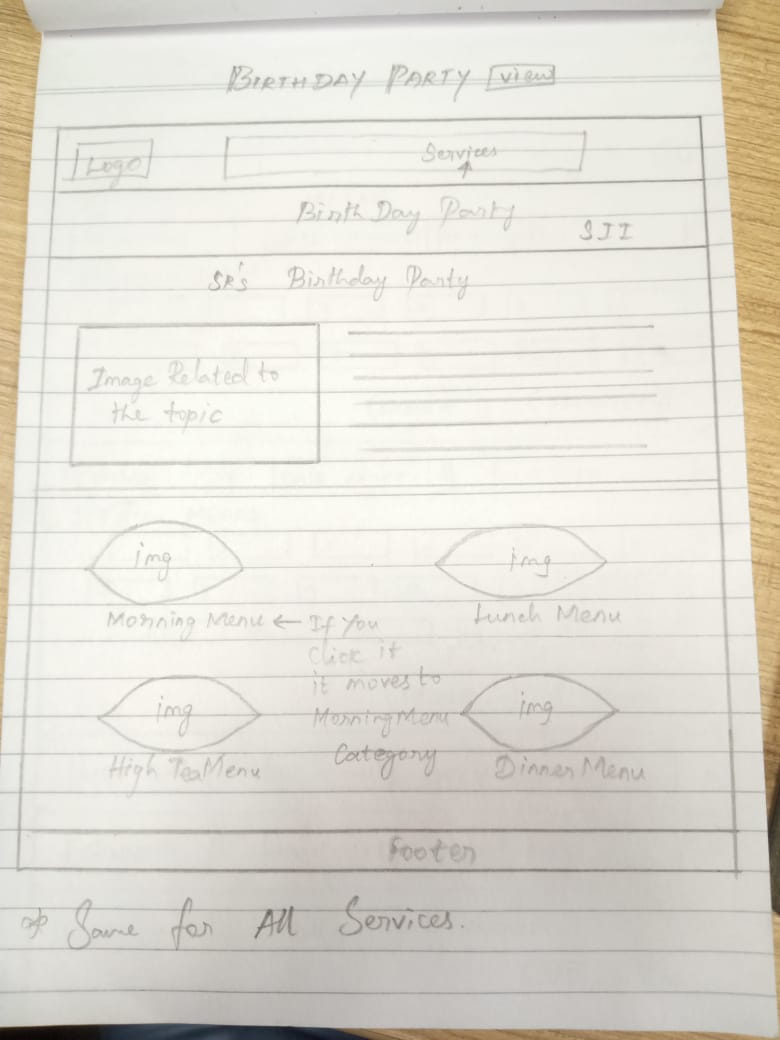 BIRTHDAY PARTY view
Logo
Services
Birth Day Party
SII
SR's Birthday Party
Image Related to
the topic
img
img
Morning Menu ← If You
Click it
it moves to
Morning Menu
Category
Lunch Menu
img
img
High Tea Menu
Dinner Menu
Footer
* Same for All Services.